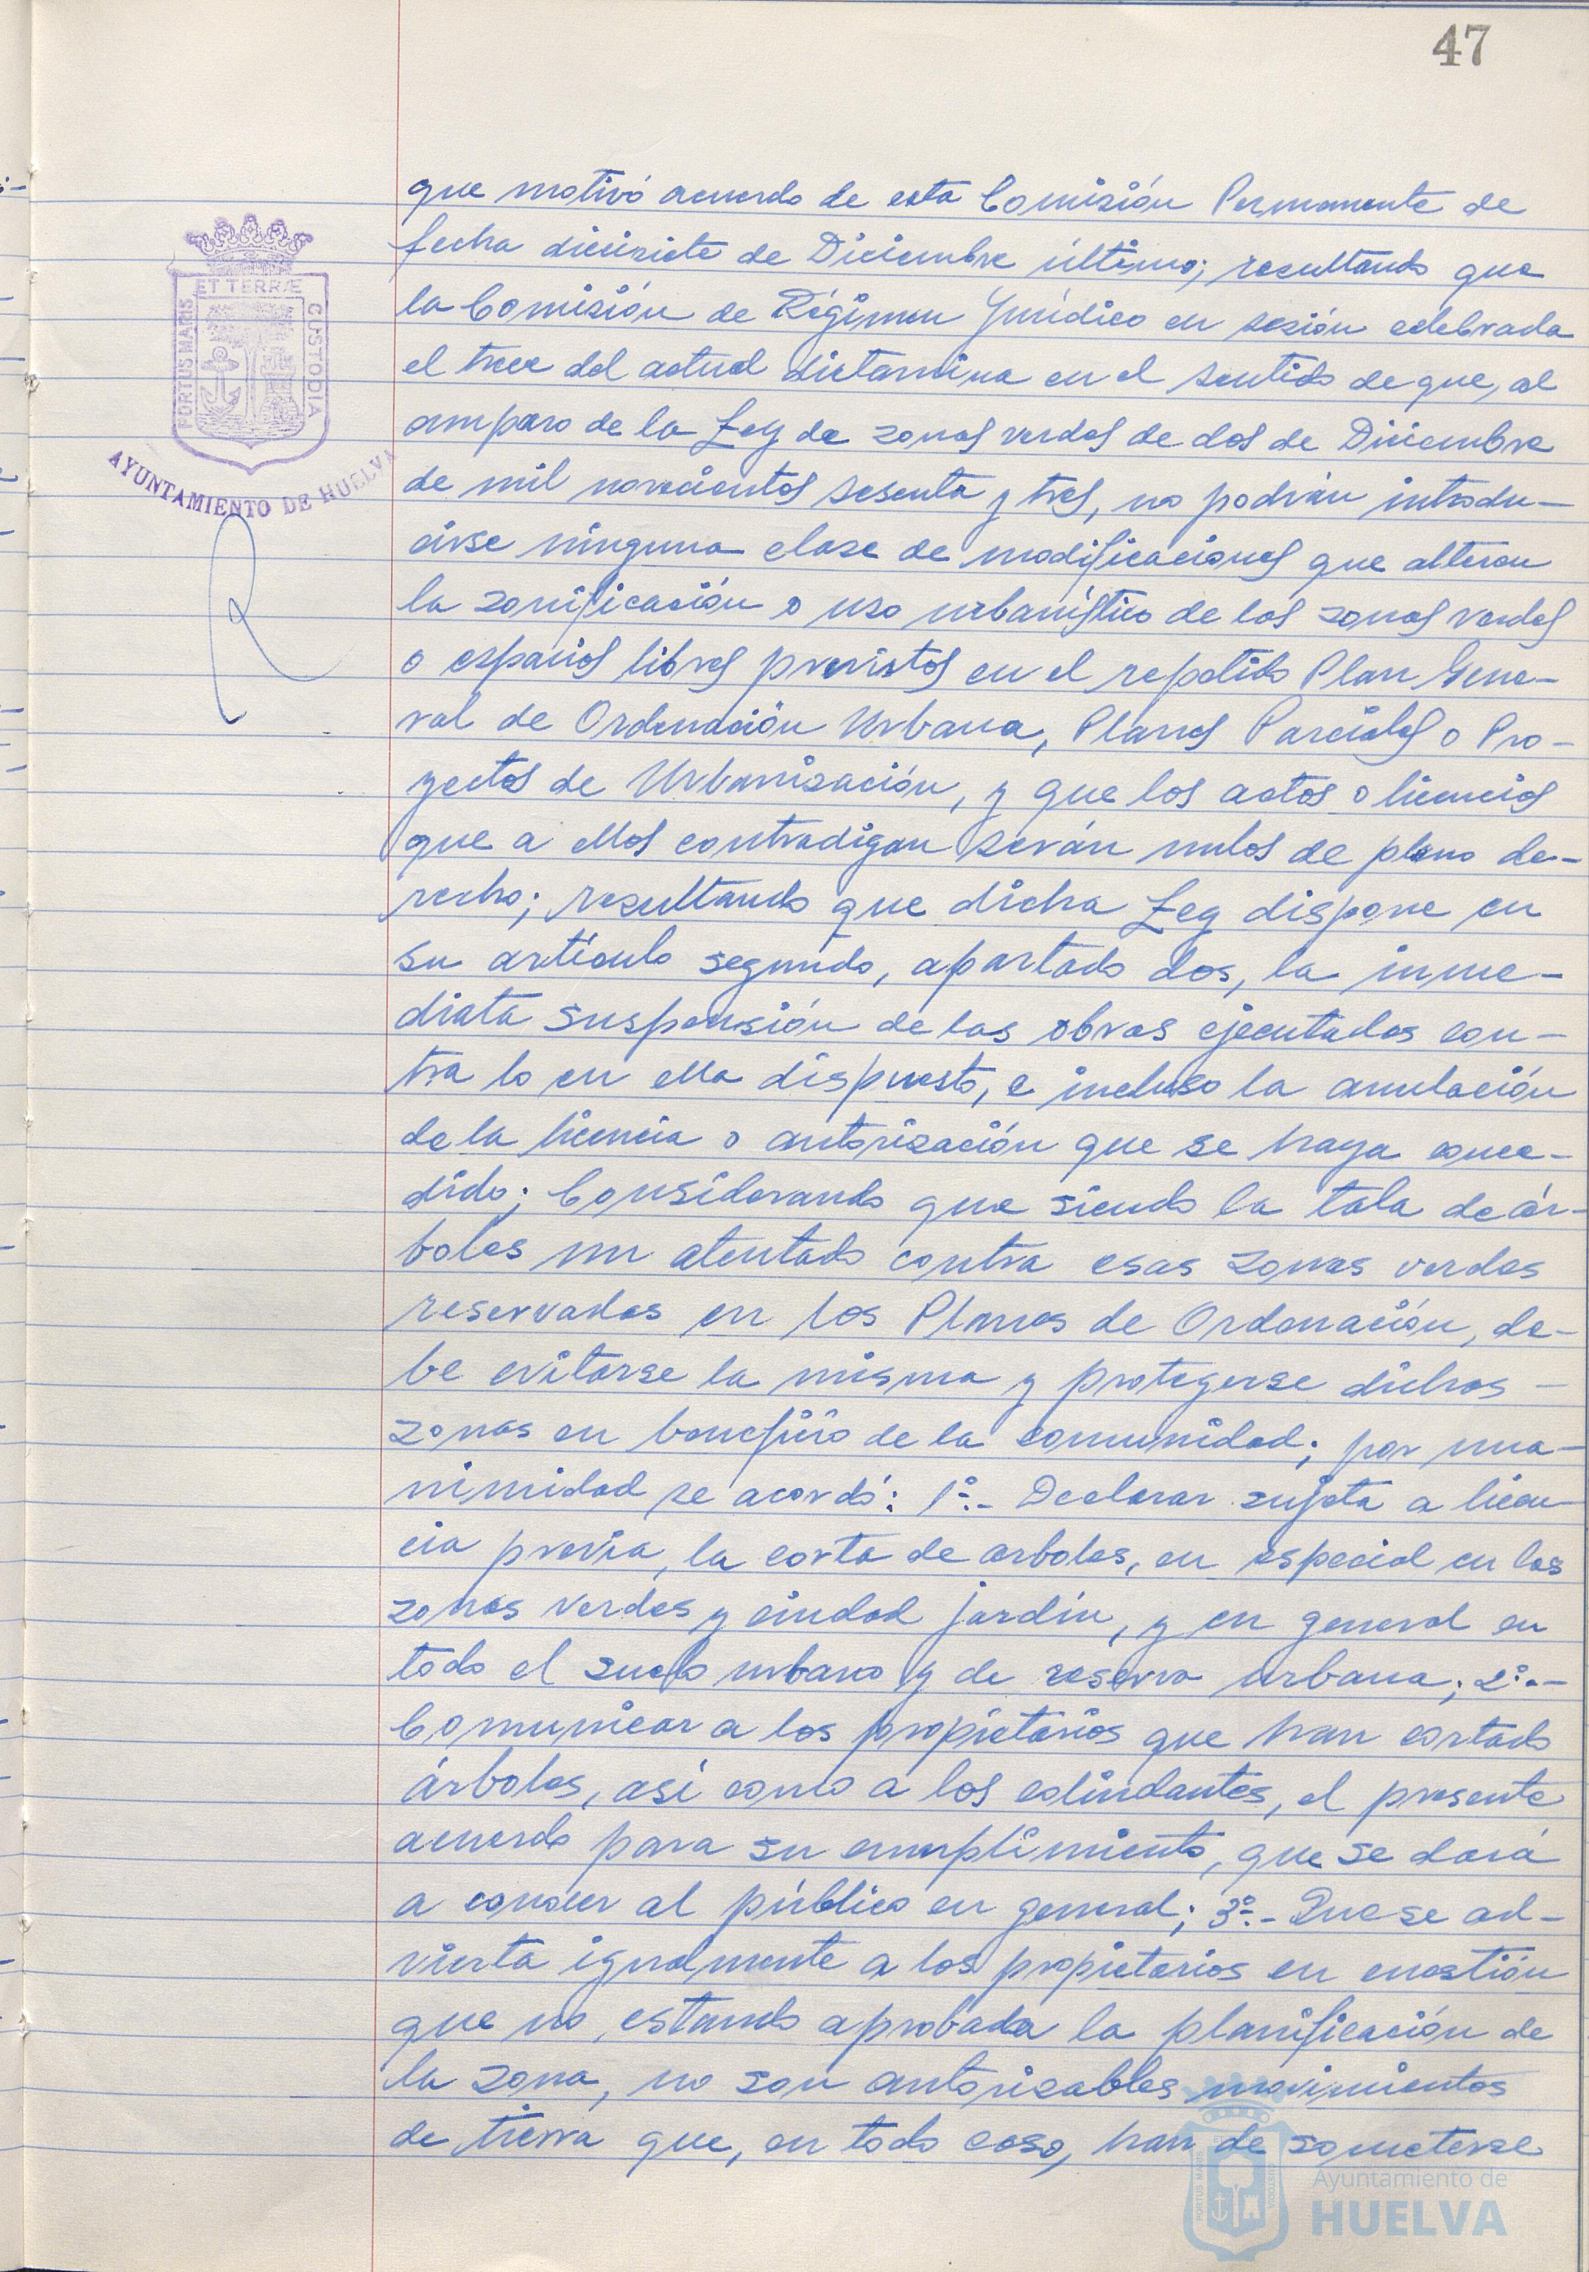 47
que motivó acuerdo de esta Comisión Permanente de
fecha diecisiete de Diciembre último; resultando que
la Comisión de Régimen Jurídico en sesión celebrada
el trece del actual dictamina en el sentido de que, al
amparo de la Ley de zonas verdes de dos de Diciembre
de mil novecientos sesenta y tres, no podrán introdu-
cirse ninguna clase de modificaciones que alteren
la zonificación o uso urbanístico de las zonas verdes
o espacios libres previstos en el repetido Plan Gene-
ral de Ordenación Urbana, Planes Parciales o Pro-
yectos de Urbanización, y que los actos o licencias
que a ellos contradigan serán nulos de pleno de-
recho; resultando que dicha Ley dispone en
su artículo segundo, apartado dos, la inme-
diata suspensión de las obras ejecutadas con-
tra lo en ella dispuesto, e incluso la anulación
de la licencia o autorización que se haya conce-
dido; Considerando que siendo la tala de ár-
boles un atentado contra esas zonas verdes
reservadas en los Planes de Ordenación, de-
be evitarse la misma y protegerse dichas -
zonas en beneficio de la comunidad; por una-
nimidad se acordó: 1º.- Declarar sujeta a licen-
cia previa, la corta de arboles, en especial en las
zonas verdes y ciudad jardín, y en general en
todo el suelo urbano y de reserva urbana; 2º.-
Comunicar a los propietarios que han cortado
árboles, así como a los colindantes, el presente
acuerdo para su cumplimiento, que se dará
a conocer al público en general; 3º.- Que se ad-
vierta igualmente a los propietarios en cuestión
que no estando aprobada la planificación de
la zona, no son autorizables movimientos
de tierra que, en todo caso, han de someterse
PORTUS MARIS
ET TERRÆ
CUSTODIA
AYUNTAMIENTO DE HUELVA
Ayuntamiento de
HUELVA